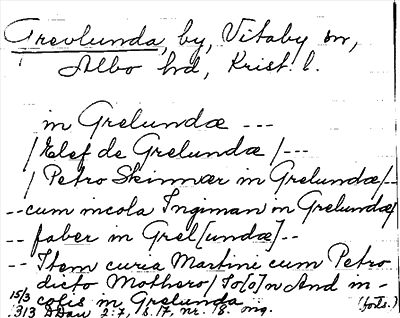 Grevlunda, by, Vitaby sn,
Albo hd, Krist. l.
in Grelundæ ---
/Elef de Grelundæ/---
/Petro Skinnær in Grelundæ/--
--cum incola Ingiman in Grelundæ/
-- faber in Grel[undæ]--
-- Item curia Martini cum Petro
dicto Mothers/Jo[o]n And in-
15/3 colis in Grelunda
313 DDan 2:7, s. 17, nr. 18. orig. (forts.)